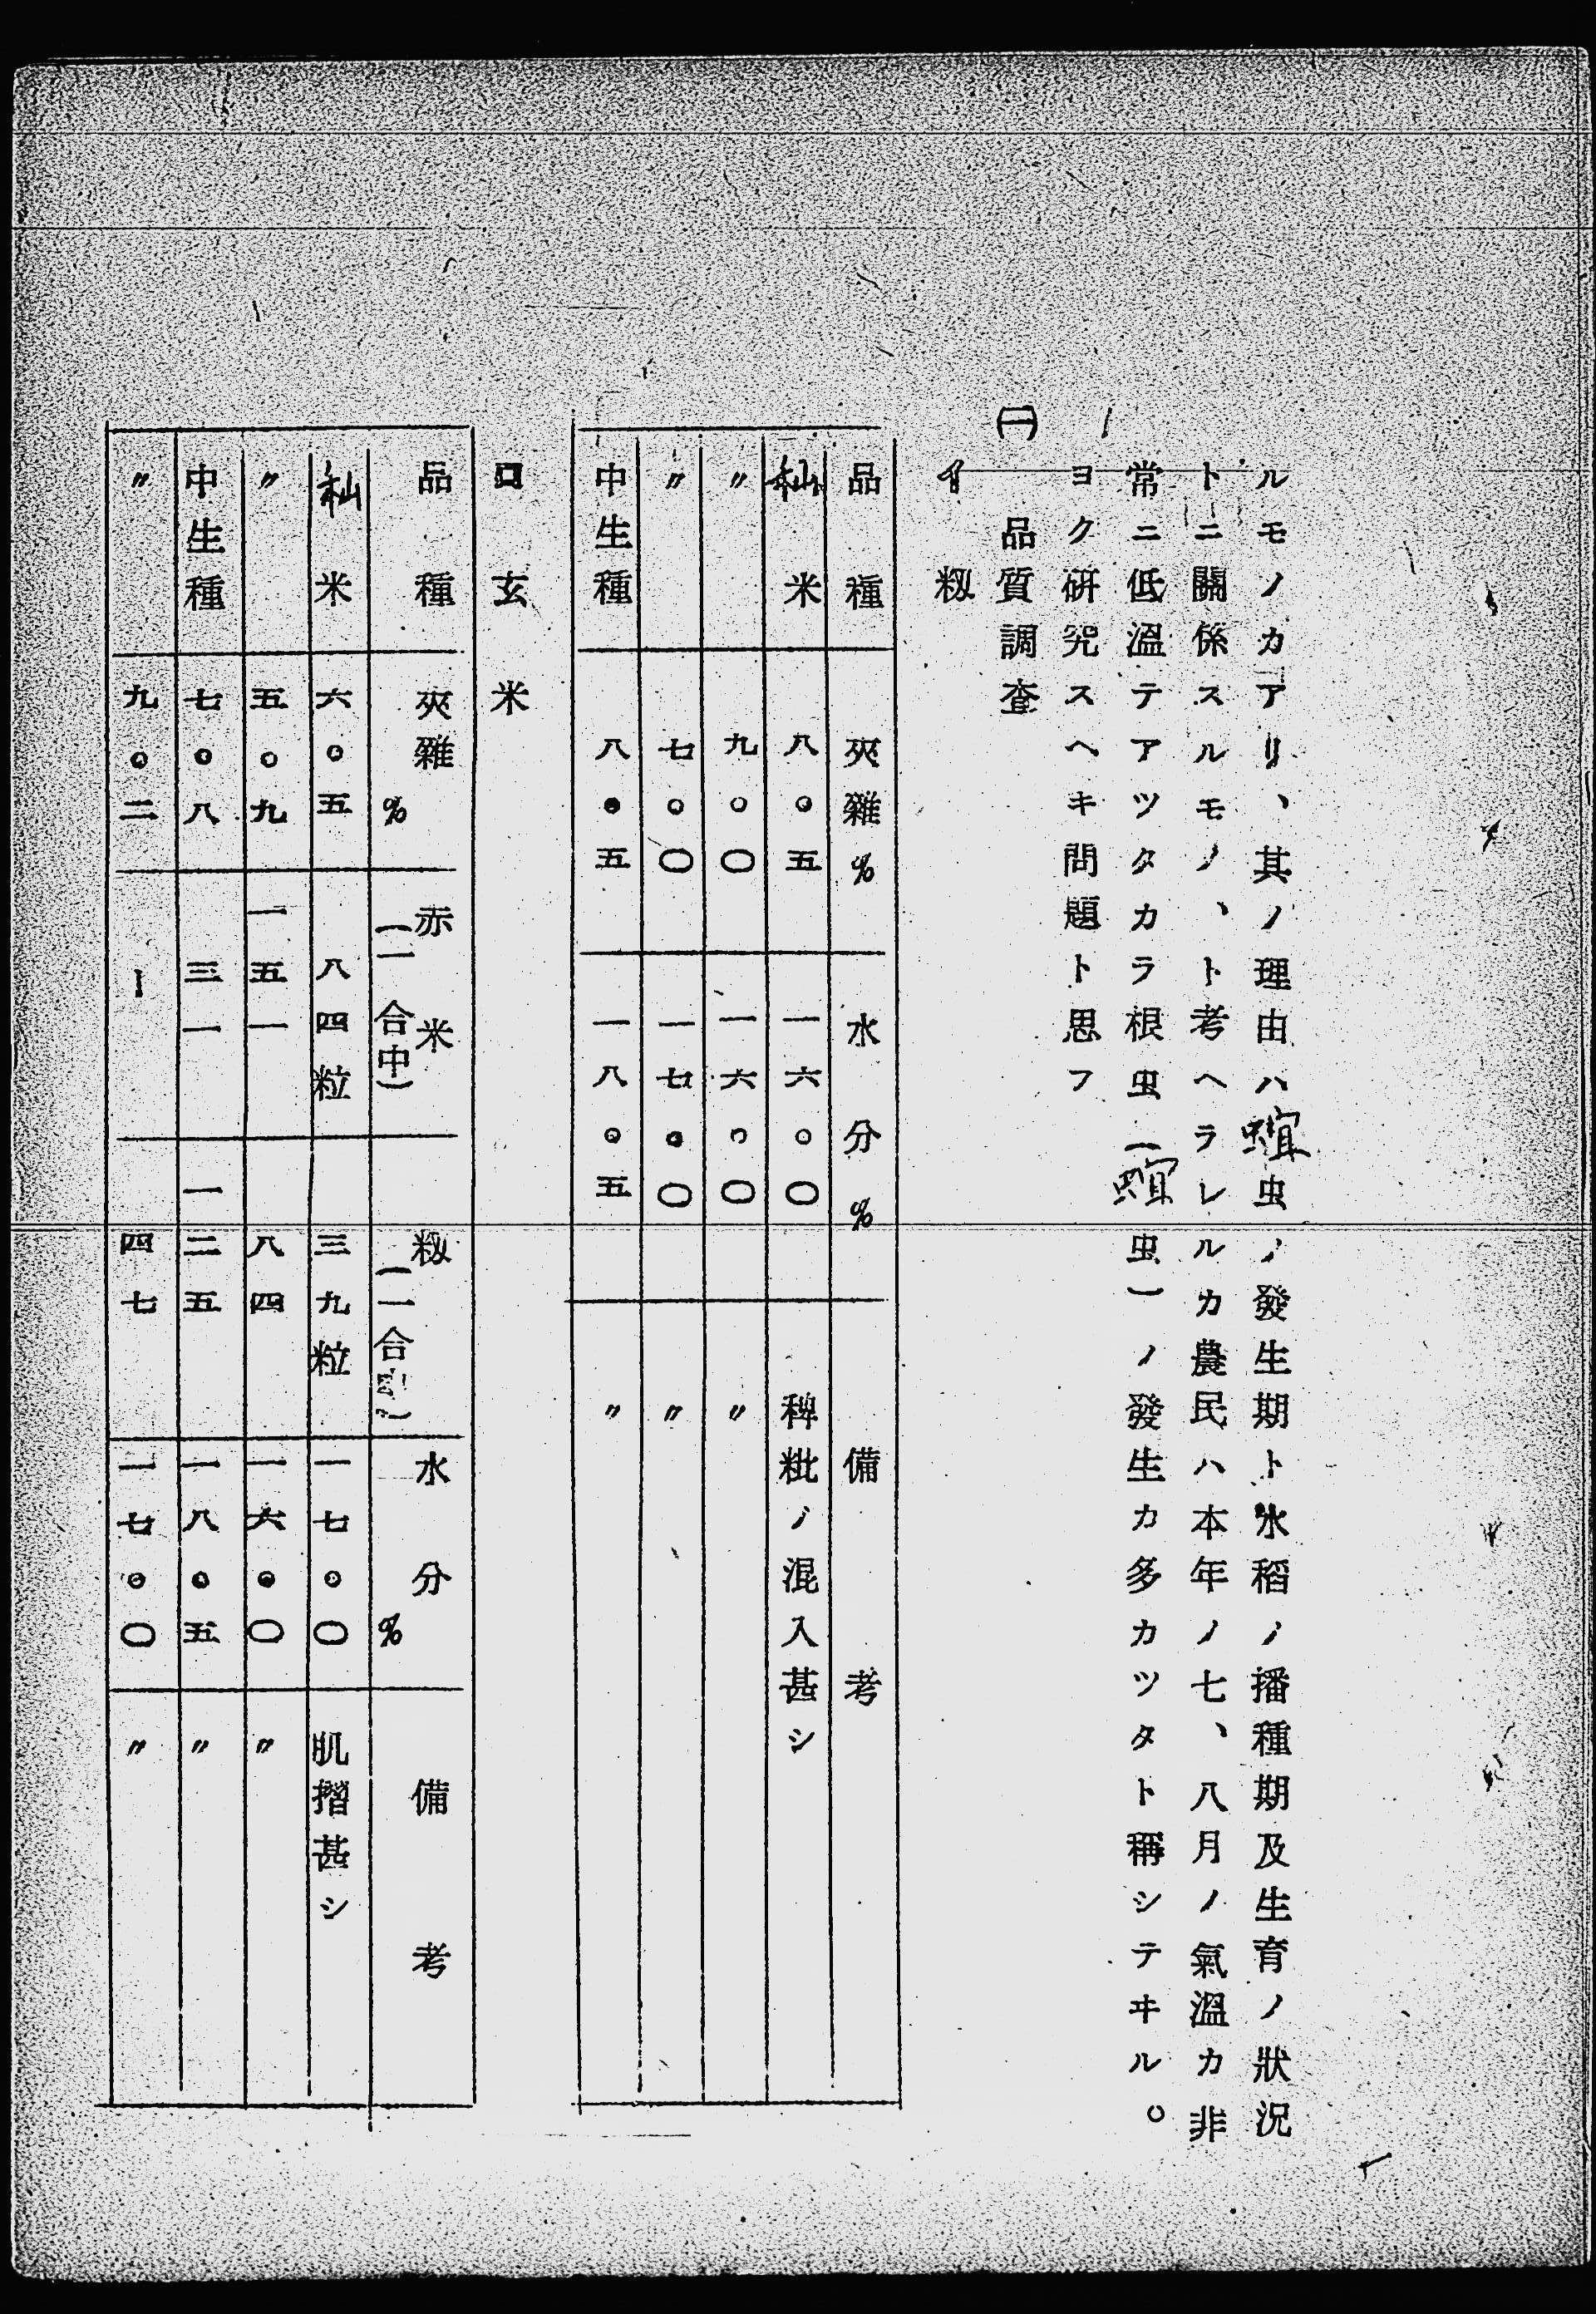 ルモノカアリ、其ノ理由ハ螟虫ノ發生期ト水稻ノ播種期及生育ノ狀況
トニ關係スルモノ、ト考ヘラレルカ農民ハ本年ノ七、八月ノ氣溫カ非
常ニ低溫テアツタカラ根虫(螟虫)ノ發生カ多カツタト稱シテヰル。
ヨク硏究スヘキ問題ト思フ
㈠ 品質調查
イ 籾
品種 夾雜% 水分% 備考
秈米 八。五 一六。〇 稗粃ノ混入甚シ
〃 九。〇 一六。〇 〃
〃 七。〇 一七。〇 〃
中生種 八。五 一八。五 〃
ロ 玄米
品種 夾雜% 赤米(一合中) 籾(一合中) 水分% 備考
秈米 六。五 八四粒 三九粒 一七。〇 肌摺甚シ
〃 五。九 一五一 八四 一六。〇 〃
中生種 七。八 三一 一二五 一八。五 〃
〃 九。二 ー 四七 一七。〇 〃